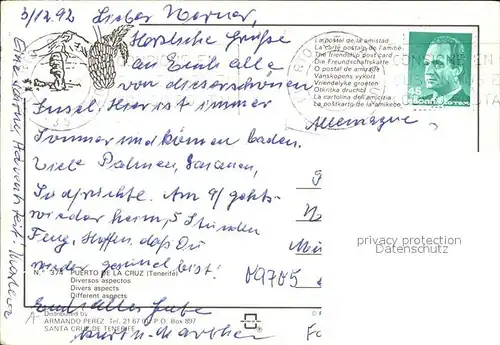 3/12.92 Lieber Werner,
Herzliche Grüße
an Euch alle
von dieser schönen
Insel. Hier ist immer
Sommer und können baden.
Viele Palmen, Bananen,
Südfrüchte. Am 9/ gehts
wieder heim, 5 Stunden
Flug. Hoffen, daß Du
wieder gesund bist!
Euch alles Gute
La postal de la amistad
La carte postale de l'amitie
The friendship post card
Die Freundschaftskarte
O postal de amizade
Vanskopens vykort
Vriendelijke groeten
Otkritka druchbi
La cartolina dell'amicizia
La poŝtkarto de la amikeco
48
Allemagne
09705
privacy protection
Datenschutz
N.º 374 PUERTO DE LA CRUZ (Tenerife)
Diversos aspectos
Divers aspects
Different aspects
Distributed by
ARMANDO PEREZ. Tel. 21 67 P.O. Box 897
SANTA CRUZ DE TENERIFE